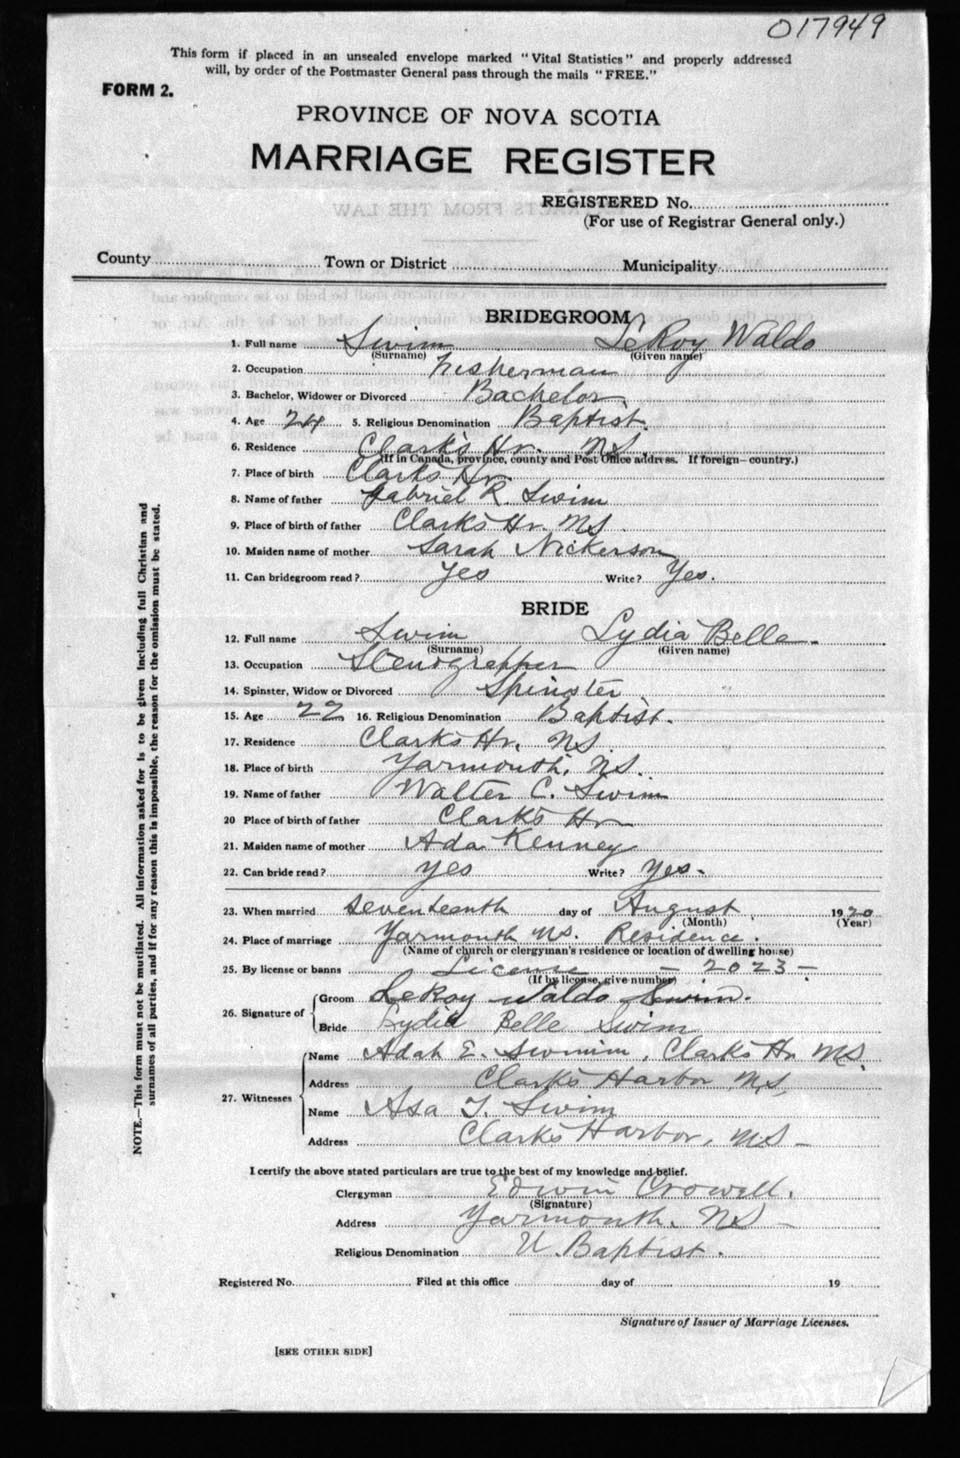 017949
This form if placed in an unsealed envelope marked "Vital Statistics" and properly addressed
will, by order of the Postmaster General pass through the mails "FREE."
FORM 2.
PROVINCE OF NOVA SCOTIA
MARRIAGE REGISTER
REGISTERED No.
(For use of Registrar General only.)
County Town or District Municipality
BRIDEGROOM
1. Full name Swim LeRoy Waldo
(Surname) (Given name)
2. Occupation Fisherman
3. Bachelor, Widower or Divorced Bachelor
4. Age 24 5. Religious Denomination Baptist.
6. Residence Clark's Hr. NS.
(If in Canada, province, county and Post Office address. If foreign—country.)
7. Place of birth Clark's Hr.
8. Name of father Gabriel R. Swim
9. Place of birth of father Clark's Hr. NS
10. Maiden name of mother Sarah Nickerson
11. Can bridegroom read? Yes Write? Yes.
BRIDE
12. Full name Swim Lydia Belle
(Surname) (Given name)
13. Occupation Stenographer
14. Spinster, Widow or Divorced Spinster
15. Age 22 16. Religious Denomination Baptist.
17. Residence Clark's Hr. NS
18. Place of birth Yarmouth, NS.
19. Name of father Walter C. Swim
20 Place of birth of father Clark's Hr
21. Maiden name of mother Ada Kenney
22. Can bride read? Yes Write? Yes.
23. When married Seventeenth day of August 1920
(Month) (Year)
24. Place of marriage Yarmouth NS. Residence.
(Name of church or clergyman's residence or location of dwelling house)
25. By license or banns License - 2023 -
(If by license, give number)
26. Signature of Groom LeRoy Waldo Swim.
Bride Lydia Belle Swim
27. Witnesses Name Adah E. Swimm, Clark's Hr NS.
Address Clark's Harbor NS,
Name Asa T. Swim
Address Clark's Harbor, NS -
I certify the above stated particulars are true to the best of my knowledge and belief.
Clergyman Edwin Crowell.
(Signature)
Address Yarmouth. NS -
Religious Denomination U. Baptist.
Registered No. Filed at this office day of 19
Signature of Issuer of Marriage Licenses.
[SEE OTHER SIDE]
NOTE.—This form must not be mutilated. All information asked for is to be given including full Christian and
surnames of all parties, and if for any reason this is impossible, the reason for the omission must be stated.